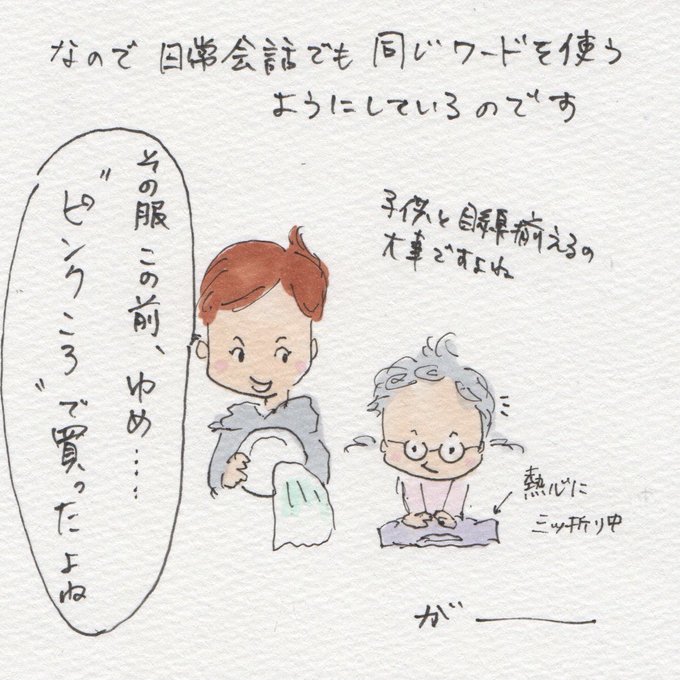 なので 日常会話でも 同じワードを使う
ようにしているのです
その服 この前、ゆめ……
"ピンクころ"で買ったよね
子供と目線揃えるの
大事ですよね
熱心に
三ッ折り中
が――